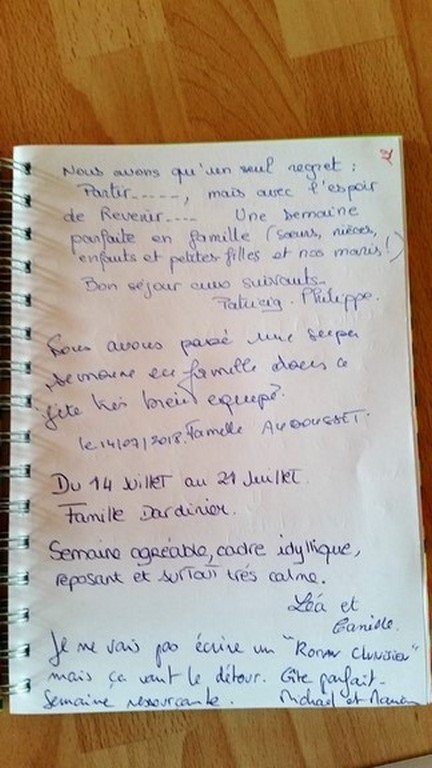 Nous avons qu'un seul regret :
Partir-----, mais avec l'espoir
de Revenir---- Une semaine
parfaite en famille (sœurs, nièces,
enfants et petites filles et nos maris!)
Bon séjour aux suivants..
Philippe.
Nous avons passé une super
semaine en famille dans ce
gîte très bien équipé.
le 14/07/2018. Famille AUDOUSSET.
Du 14 Juillet au 21 Juillet.
Famille Dardinier.
Semaine agréable, cadre idyllique,
reposant et surtout très calme.
Léa et
Camille.
Je ne vais pas écrire un "Roman
mais ça vaut le détour. Gîte parfait-
Semaine ressourçante. Michael et